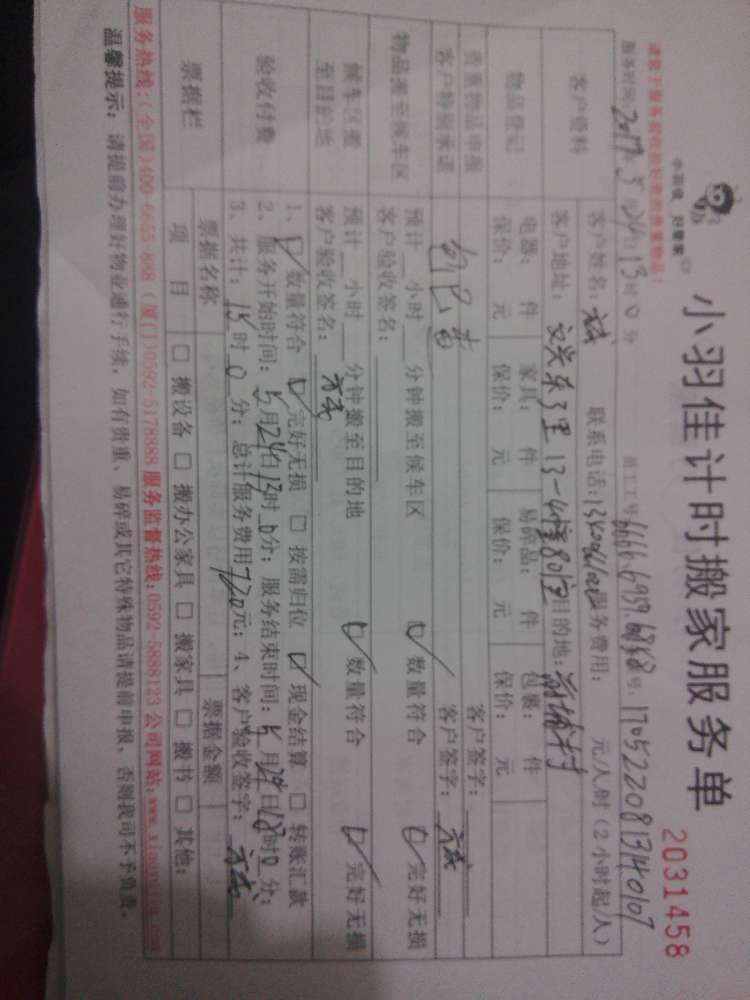 小羽佳 好管家
小羽佳计时搬家服务单
2031458
请客于服务前收拾好您的贵重物品!
服务时间: 2017年5月24日13时0分 员工工号: 号: 17052208134010
客户资料
客户姓名: 联系电话: 服务费用: 元/人时(2小时起/人)
客户地址: 目的地:
物品登记
电器: 件 家具: 件 易碎品: 件 包裹: 件
保价: 元 保价: 元 保价: 元 保价: 元
贵重物品申报 客户签字:
客户特别承诺 客户签字:
物品搬至候车区
预计 小时 分钟搬至候车区 ☑数量符合 ☑完好无损
客户验收签名:
候车区搬至目的地
预计 小时 分钟搬至目的地 ☑数量符合 ☑完好无损
客户验收签名:
验收付费
1、☑数量符合 ☑完好无损 □按需归位 ☑现金结算 □转账汇款
2、服务开始时间: 5月24日13时0分; 服务结束时间: 5月24日18时0分;
3、共计: 15时0分; 总计服务费用720元; 4、客户验收签字:
票据栏
票据名称 票据金额
项目 □搬设备 □搬办公家具 □搬家具 □搬书 □其他:
服务热线:(全国)400-6655-888 (厦门)0592-5178888 服务监督热线:0592-5888123 公司网站:
温馨提示: 请提前办理好物业通行手续,如有贵重、易碎或其它特殊物品请提前申报,否则我司不予负责。